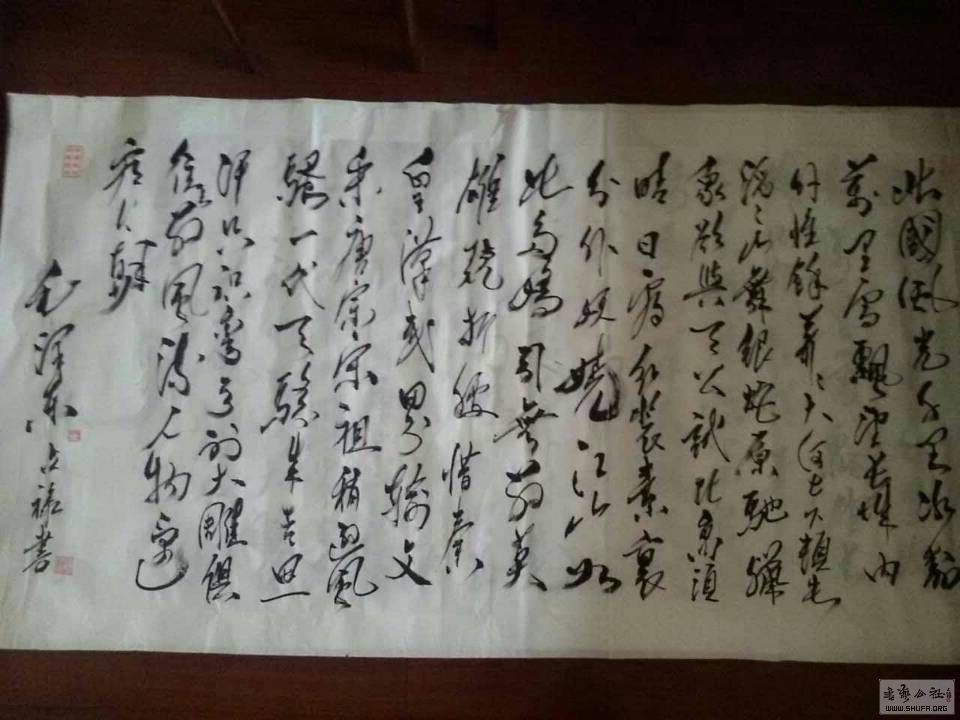 北國風光千里冰封
萬里雪飄望長城內
外惟餘莽々大河上下頓失
滔々山舞銀蛇原馳蠟
象欲與天公試比高須
晴日看紅裝素裹
分外妖嬈江山如
此多嬌引無數英
雄競折腰惜秦
皇漢武略輸文
采唐宗宋祖稍遜風
騷一代天驕成吉思
汗只識彎弓射大雕俱
往矣數風流人物還
看今朝
毛澤東 書
書藝公社
WWW.SHUFA.ORG